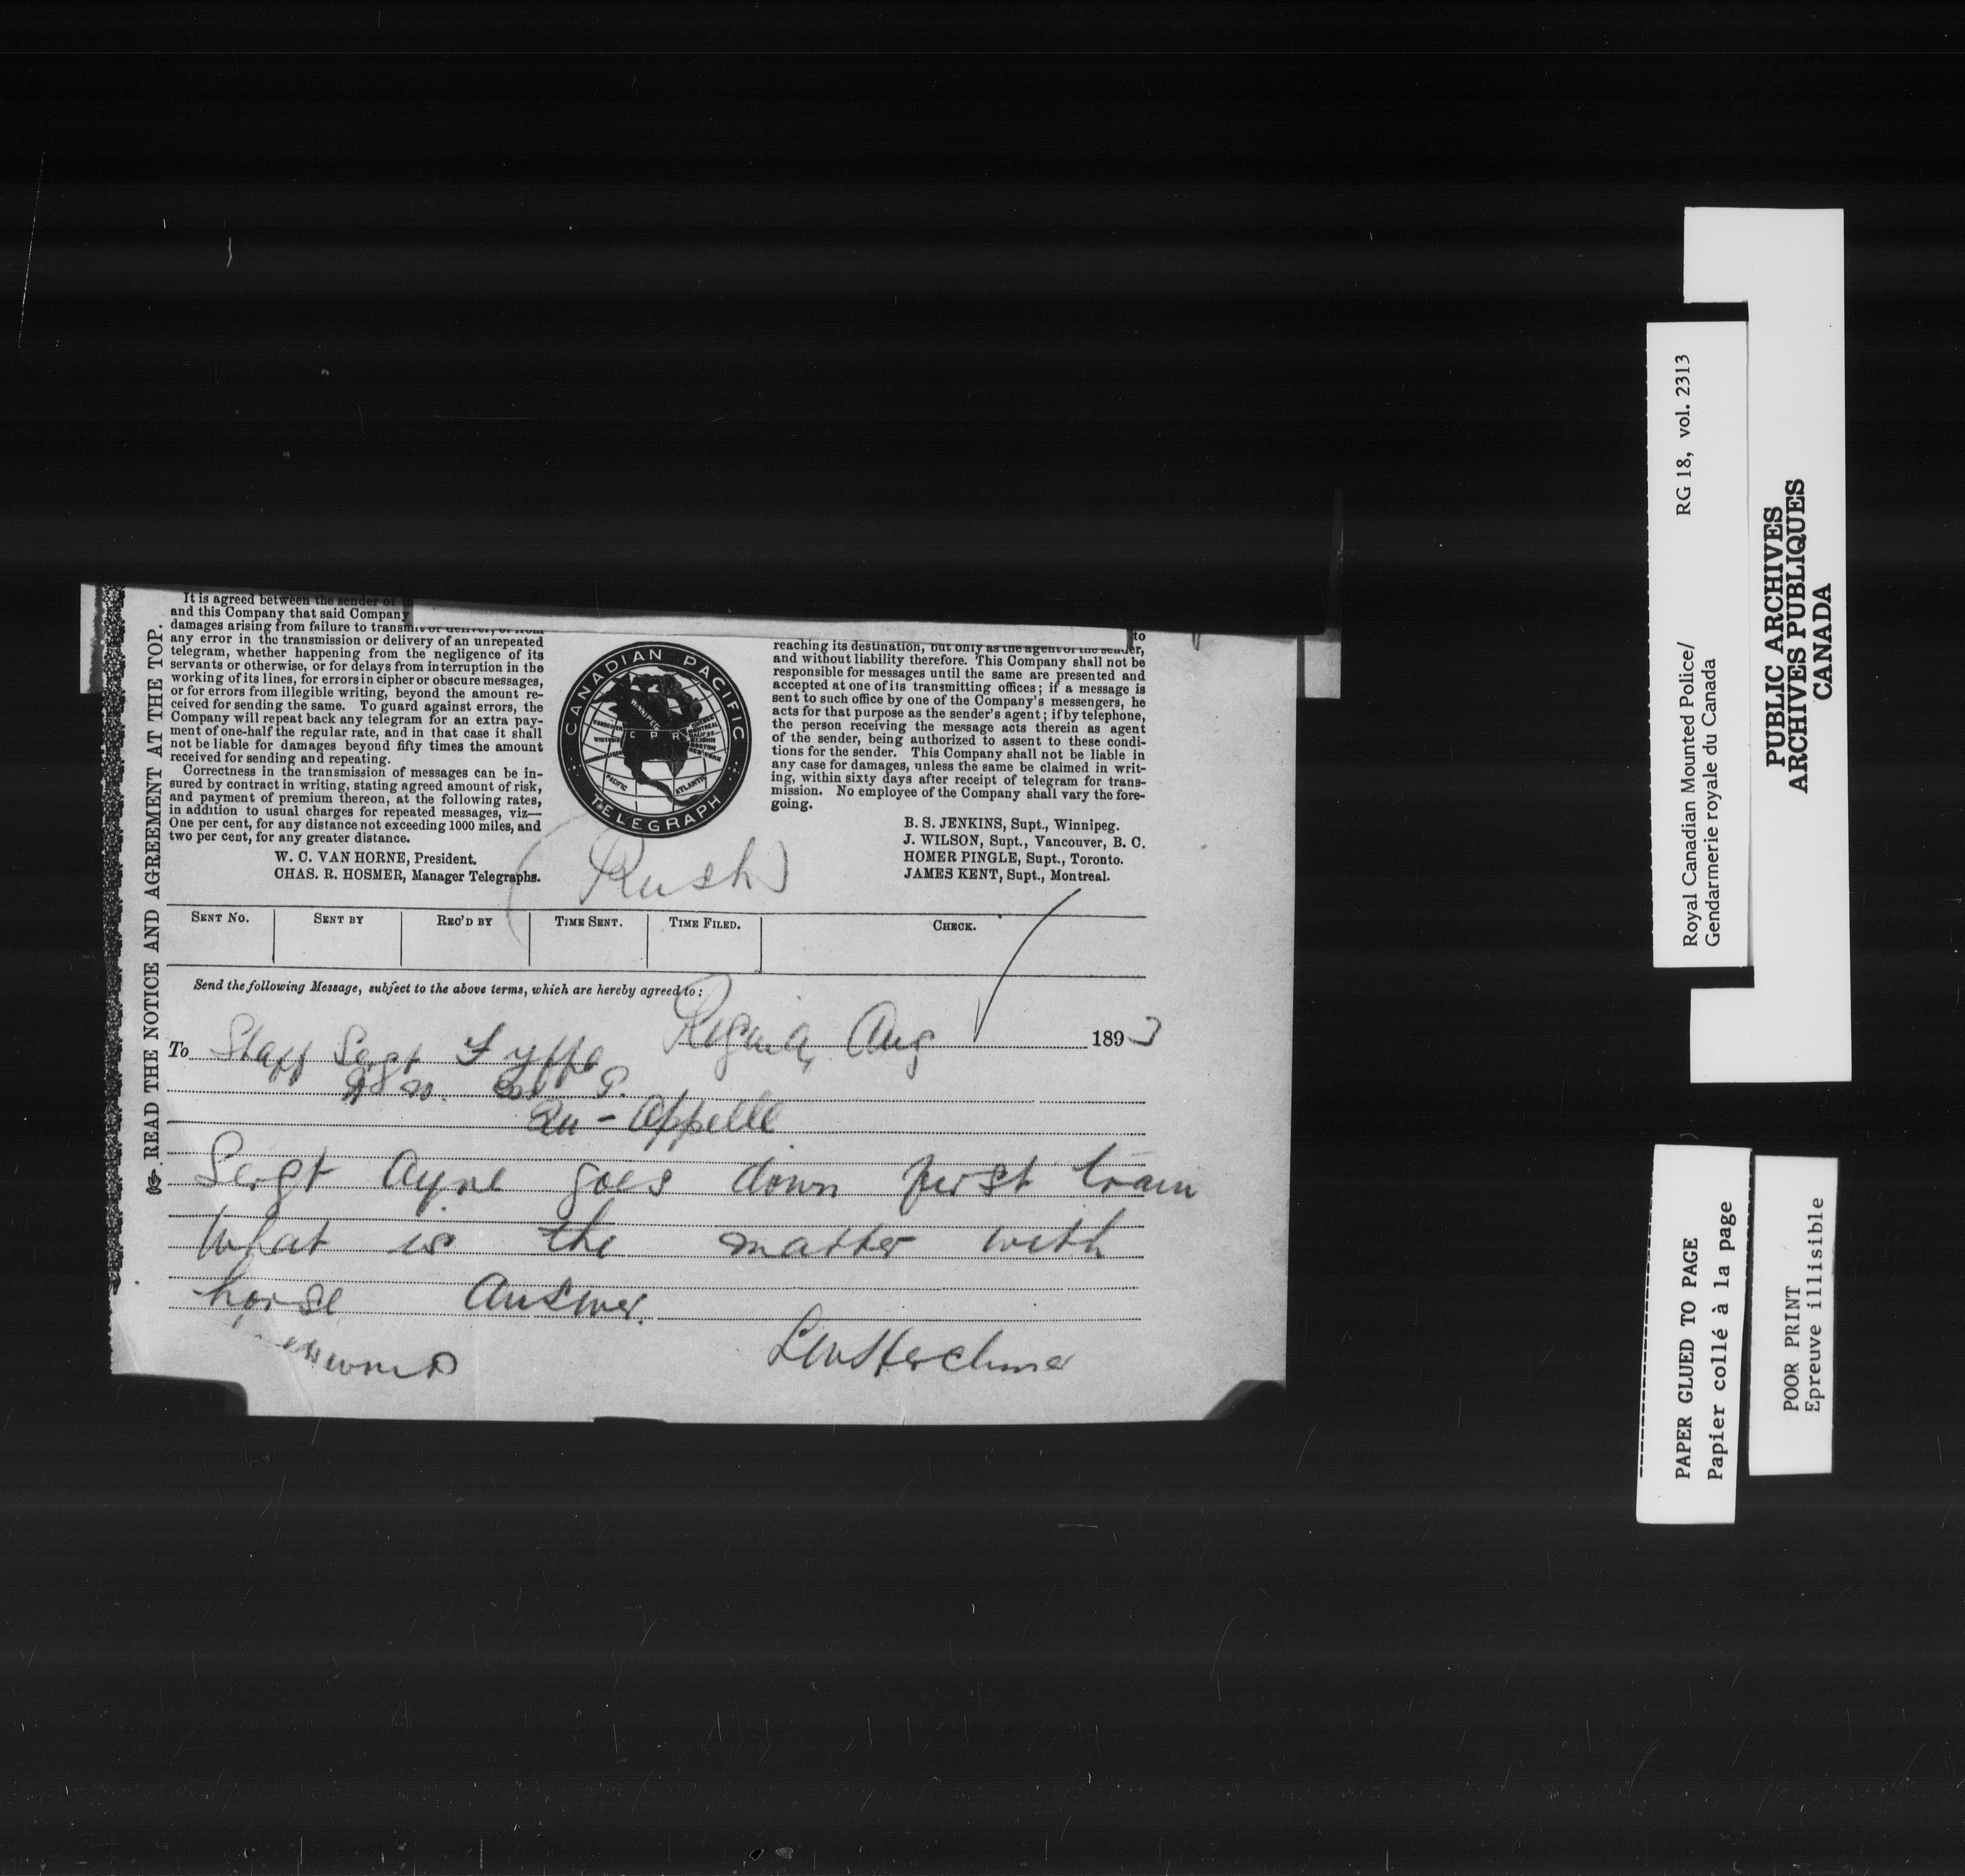 It is agreed between the sender of
and this Company that said Company
damages arising from failure to transmit or deliver, or from
any error in the transmission or delivery of an unrepeated
telegram, whether happening from the negligence of its
servants or otherwise, or for delays from interruption in the
working of its lines, for errors in cipher or obscure messages,
or for errors from illegible writing, beyond the amount re-
ceived for sending the same. To guard against errors, the
Company will repeat back any telegram for an extra pay-
ment of one-half the regular rate, and in that case it shall
not be liable for damages beyond fifty times the amount
received for sending and repeating.
Correctness in the transmission of messages can be in-
sured by contract in writing, stating agreed amount of risk,
and payment of premium thereon, at the following rates,
in addition to usual charges for repeated messages, viz—
One per cent, for any distance not exceeding 1000 miles, and
two per cent, for any greater distance.
W. C. VAN HORNE, President.
CHAS. R. HOSMER, Manager Telegraphs.
CANADIAN PACIFIC
WINNIPEG
C P R
PACIFIC
ATLANTIC
TELEGRAPH
to
reaching its destination, but only as the agent of the sender,
and without liability therefore. This Company shall not be
responsible for messages until the same are presented and
accepted at one of its transmitting offices; if a message is
sent to such office by one of the Company's messengers, he
acts for that purpose as the sender's agent; if by telephone,
the person receiving the message acts therein as agent
of the sender, being authorized to assent to these condi-
tions for the sender. This Company shall not be liable in
any case for damages, unless the same be claimed in writ-
ing, within sixty days after receipt of telegram for trans-
mission. No employee of the Company shall vary the fore-
going.
B. S. JENKINS, Supt., Winnipeg.
J. WILSON, Supt., Vancouver, B. C.
HOMER PINGLE, Supt., Toronto.
JAMES KENT, Supt., Montreal.
READ THE NOTICE AND AGREEMENT AT THE TOP.
(Rush)
SENT NO. SENT BY REC'D BY TIME SENT. TIME FILED. CHECK.
Send the following Message, subject to the above terms, which are hereby agreed to:
Regina, Aug 1893
To Staff Sergt Fyffe
N. W. P.
Qu-Appelle
Sergt Ayre goes down first train
What is the matter with
horse Answer.
LWHerchmer
Royal Canadian Mounted Police/ RG 18, vol. 2313
Gendarmerie royale du Canada
PUBLIC ARCHIVES
ARCHIVES PUBLIQUES
CANADA
PAPER GLUED TO PAGE
Papier collé à la page
POOR PRINT
Epreuve illisible